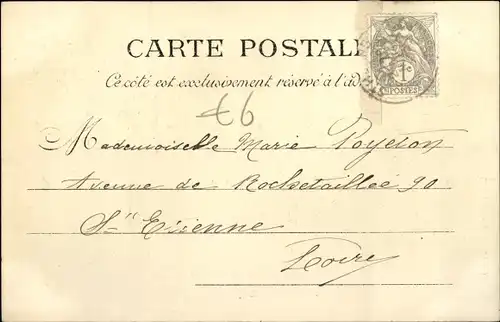 CARTE POSTALE
Ce côté est exclusivement réservé à l'ad
1c
POSTES
€6
Mademoiselle Marie
Avenue de Rochetaillée 90
St Etienne
Loire